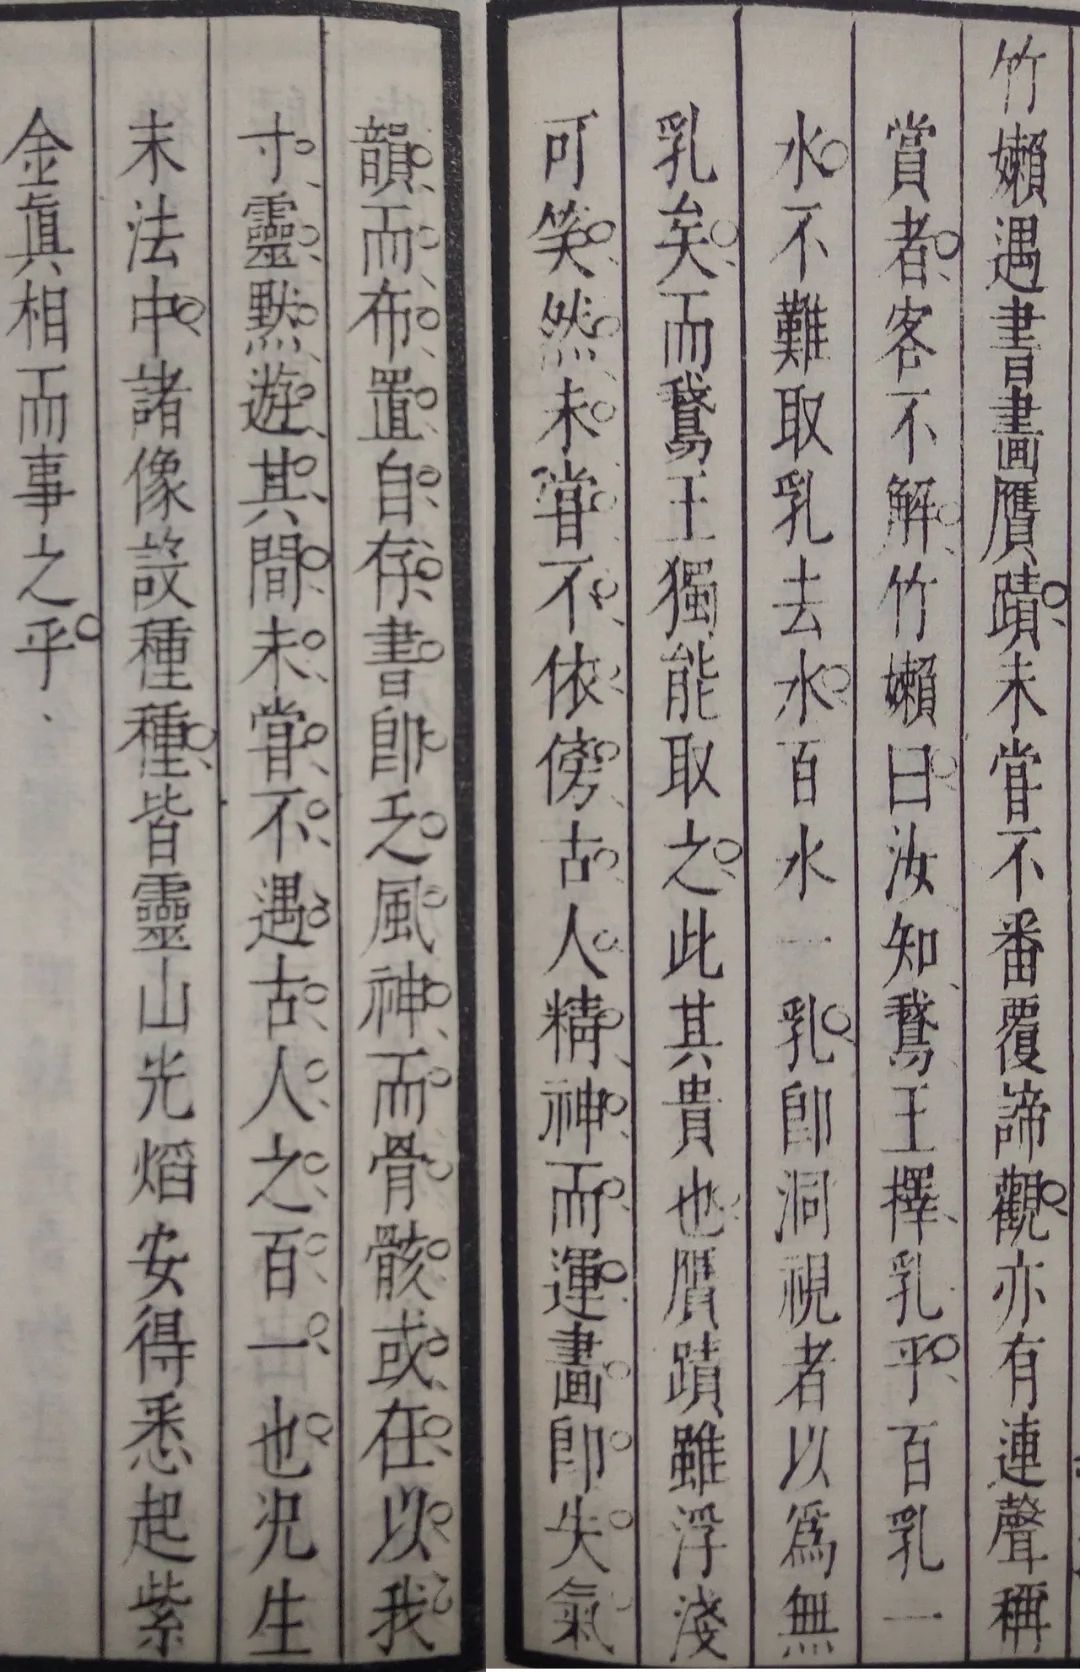 竹嬾遇書畫贋蹟未甞不番覆諦觀亦有連聲稱
賞者客不解竹嬾曰汝知鵞王擇乳乎百乳一
水不難取乳去水百水一乳卽洞視者以爲無
乳矣而鵞王獨能取之此其貴也贋蹟雖浮淺
可笑然未甞不依傍古人精神而運畫卽失氣
韻而布置自存書卽乏風神而骨骸或在以我
寸靈默遊其間未甞不遇古人之百一也况生
末法中諸像設種種皆靈山光熖安得悉起紫
金眞相而事之乎